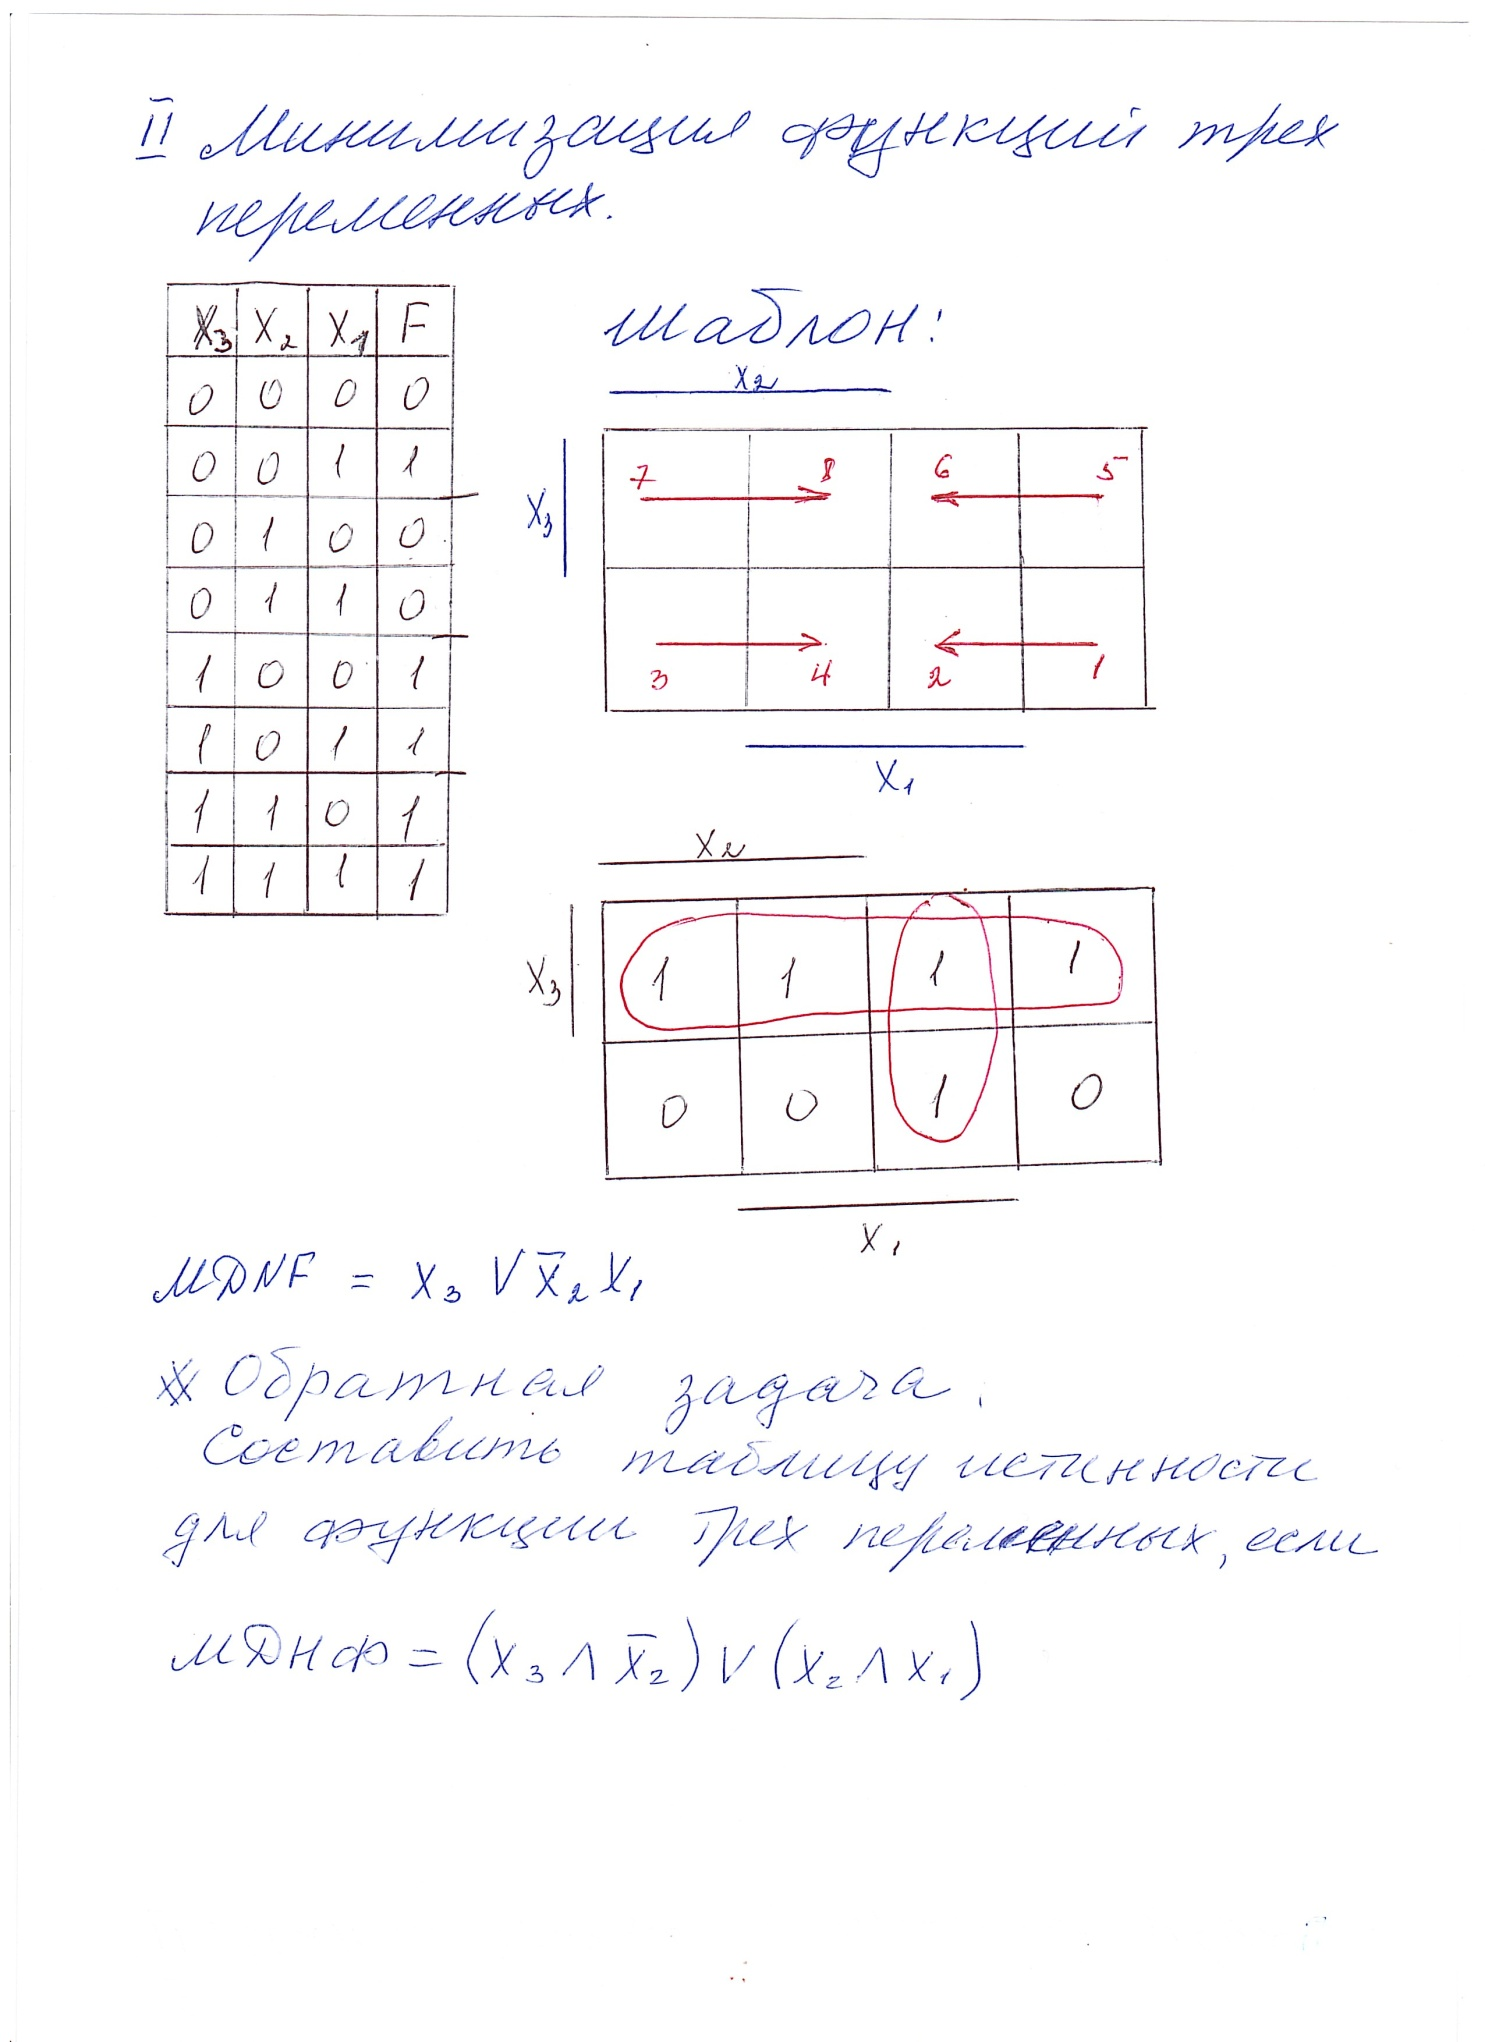 II Минимизация функций трех
переменных.
X₃ X₂ X₁ F
0 0 0 0
0 0 1 1
0 1 0 0
0 1 1 0
1 0 0 1
1 0 1 1
1 1 0 1
1 1 1 1
шаблон:
X₂
X₃
7 8 6 5
3 4 2 1
X₁
X₂
X₃
1 1 1 1
0 0 1 0
X₁
МDNF = X₃ V X̅₂ X₁
* Обратная задача.
Составить таблицу истинности
для функции трех переменных, если
МДНФ = (X₃ Λ X̅₂) V (X₂ Λ X₁)